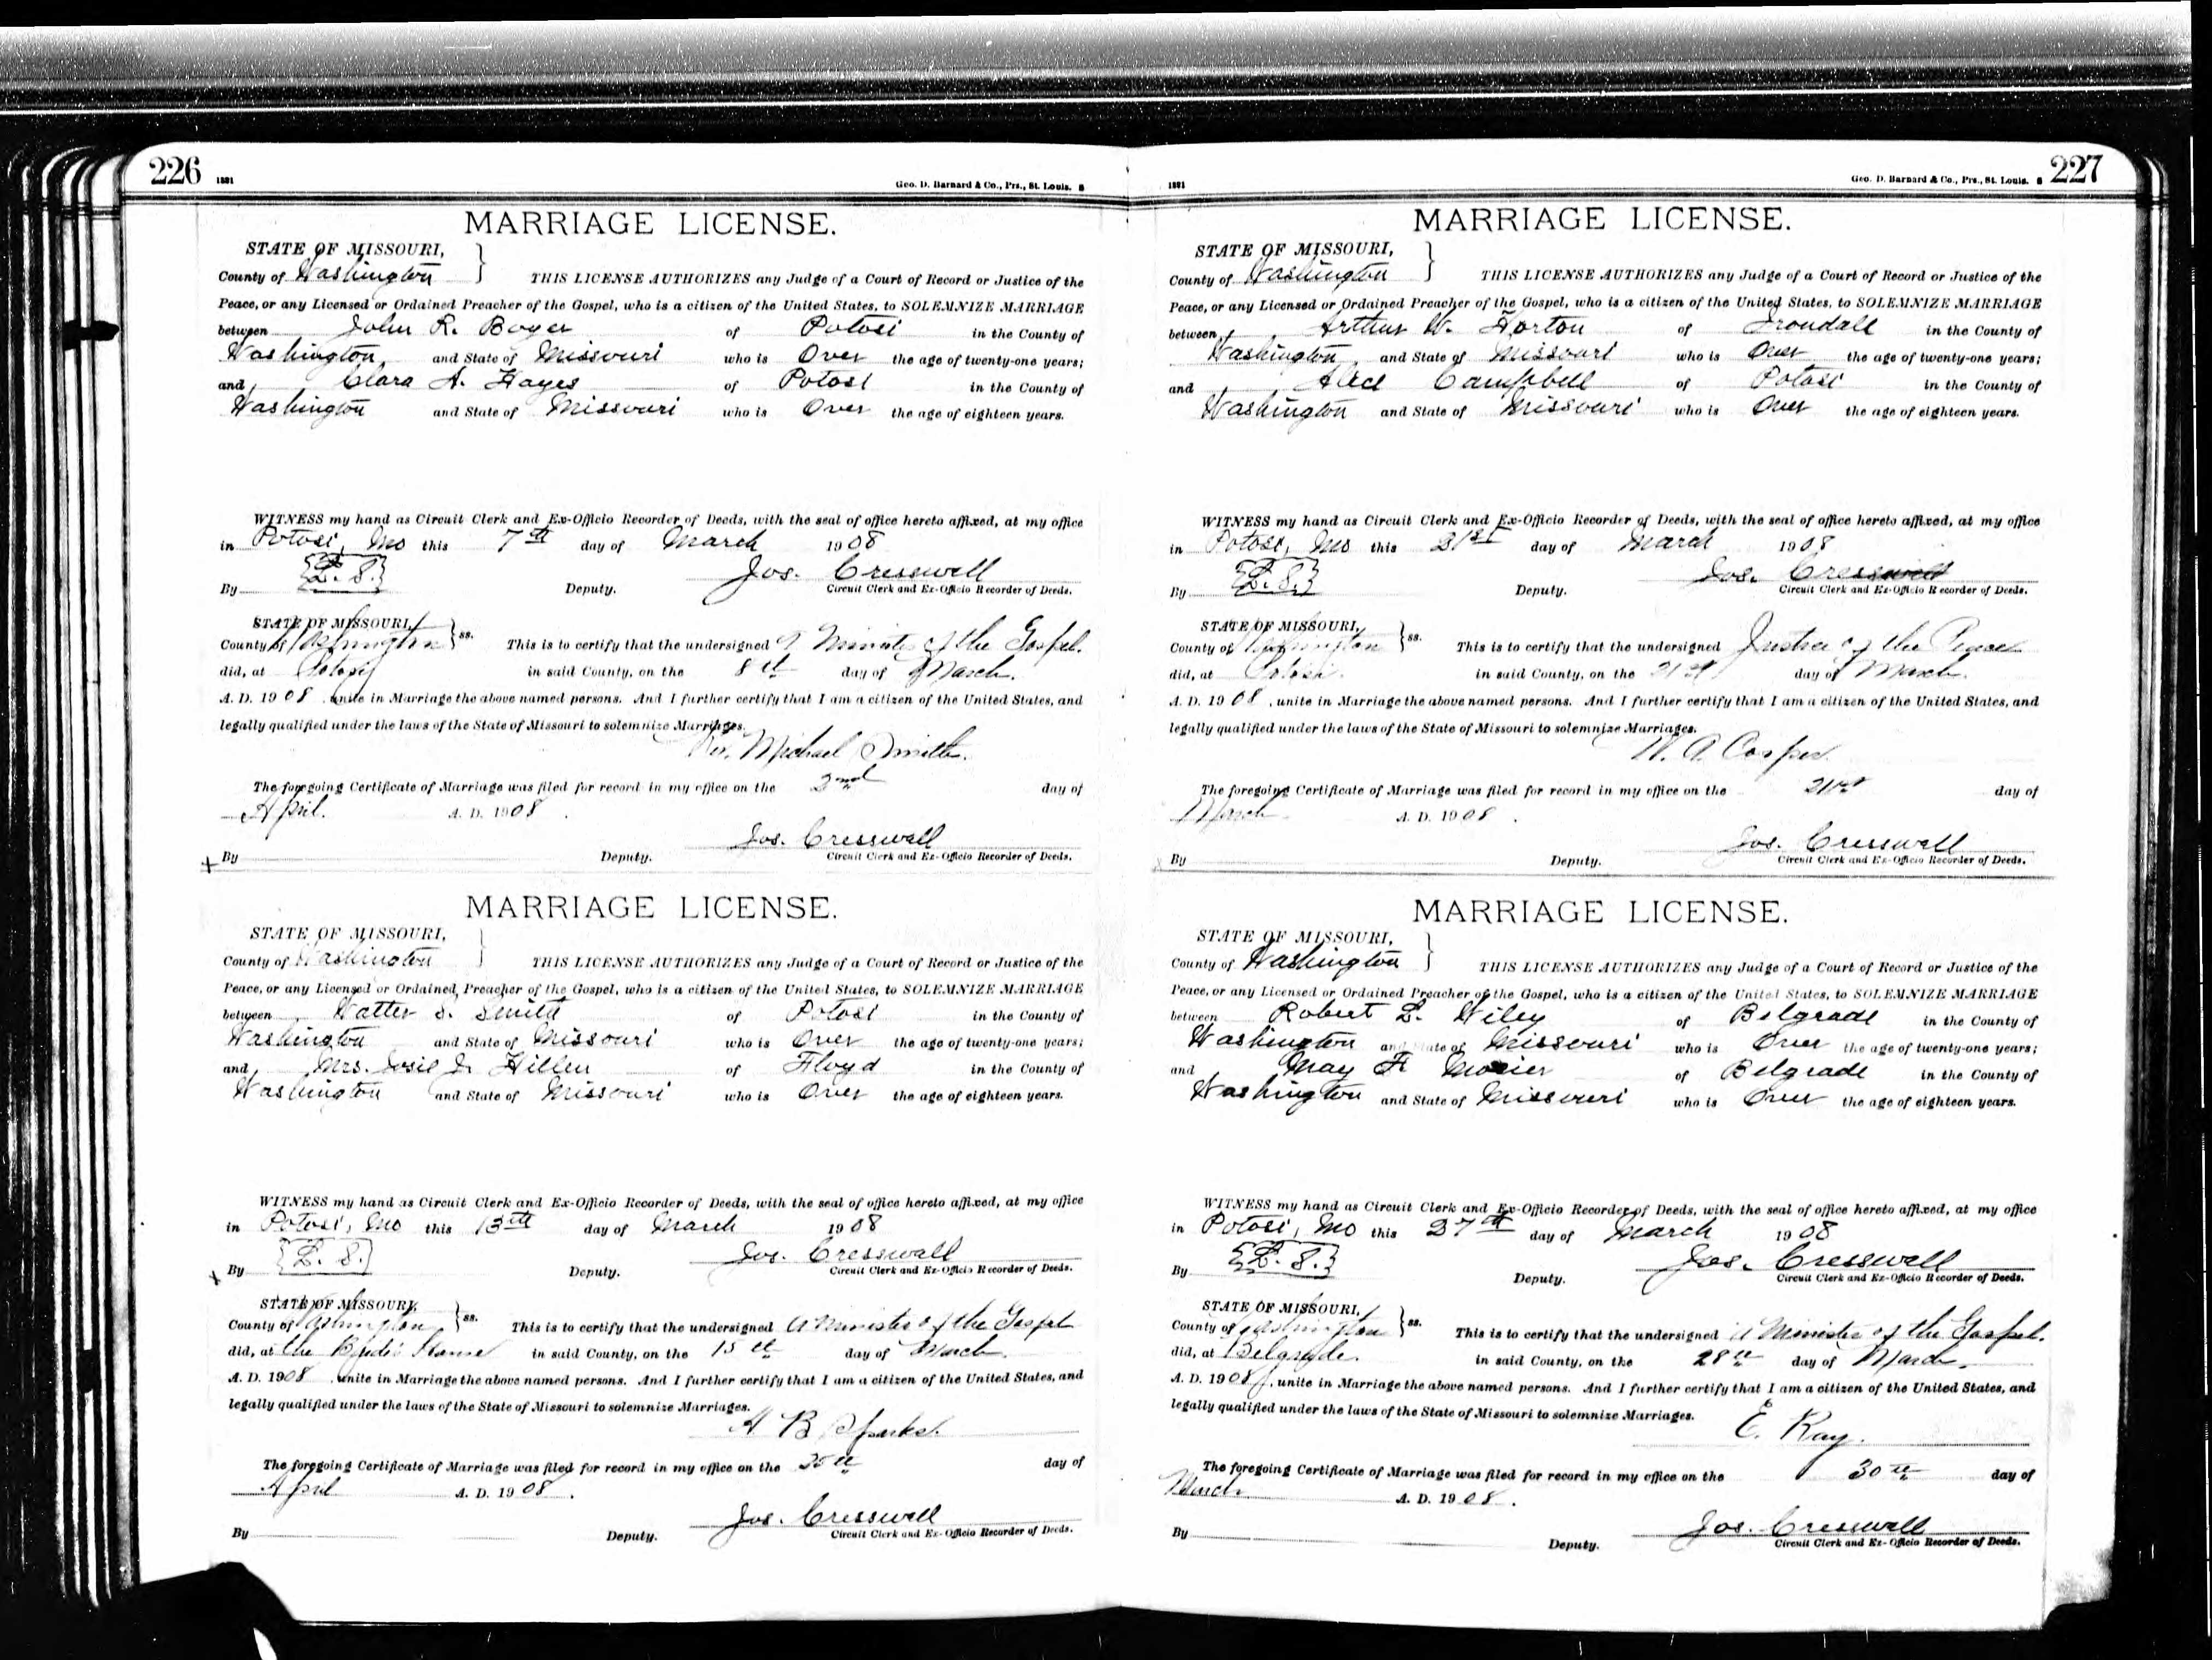 226 1881 Geo. D. Barnard & Co., Prs., St. Louis.
MARRIAGE LICENSE.
STATE OF MISSOURI,
County of Washington } THIS LICENSE AUTHORIZES any Judge of a Court of Record or Justice of the
Peace, or any Licensed or Ordained Preacher of the Gospel, who is a citizen of the United States, to SOLEMNIZE MARRIAGE
between John R. Boyer of Potosi in the County of
Washington, and State of Missouri who is Over the age of twenty-one years;
and Clara A. Hayes of Potosi in the County of
Washington and State of Missouri who is Over the age of eighteen years.
WITNESS my hand as Circuit Clerk and Ex-Officio Recorder of Deeds, with the seal of office hereto affixed, at my office
in Potosi, Mo this 7th day of March 1908
{L. S.} Jos. Cresswell
By Deputy. Circuit Clerk and Ex-Officio Recorder of Deeds.
STATE OF MISSOURI,
County of Washington } ss. This is to certify that the undersigned A Minister of the Gospel.
did, at Potosi in said County, on the 8th day of March.
A. D. 1908, unite in Marriage the above named persons. And I further certify that I am a citizen of the United States, and
legally qualified under the laws of the State of Missouri to solemnize Marriages.
Rev. Michael Smith.
The foregoing Certificate of Marriage was filed for record in my office on the 2nd day of
April. A. D. 1908.
Jos. Cresswell
+ By Deputy. Circuit Clerk and Ex-Officio Recorder of Deeds.
MARRIAGE LICENSE.
STATE OF MISSOURI,
County of Washington } THIS LICENSE AUTHORIZES any Judge of a Court of Record or Justice of the
Peace, or any Licensed or Ordained Preacher of the Gospel, who is a citizen of the United States, to SOLEMNIZE MARRIAGE
between Walter S. Smith of Potosi in the County of
Washington and State of Missouri who is Over the age of twenty-one years;
and Mrs. Josie J. Hillen of Floyd in the County of
Washington and State of Missouri who is Over the age of eighteen years.
WITNESS my hand as Circuit Clerk and Ex-Officio Recorder of Deeds, with the seal of office hereto affixed, at my office
in Potosi, Mo this 13th day of March 1908
{L. S.} Jos. Cresswell
+ By Deputy. Circuit Clerk and Ex-Officio Recorder of Deeds.
STATE OF MISSOURI,
County of Washington } ss. This is to certify that the undersigned A Minister of the Gospel
did, at the in said County, on the 15th day of March.
A. D. 1908, unite in Marriage the above named persons. And I further certify that I am a citizen of the United States, and
legally qualified under the laws of the State of Missouri to solemnize Marriages.
A B Sparks.
The foregoing Certificate of Marriage was filed for record in my office on the 25th day of
April A. D. 1908.
Jos. Cresswell
By Deputy. Circuit Clerk and Ex-Officio Recorder of Deeds.
1881 Geo. D. Barnard & Co., Prs., St. Louis. 227
MARRIAGE LICENSE.
STATE OF MISSOURI,
County of Washington } THIS LICENSE AUTHORIZES any Judge of a Court of Record or Justice of the
Peace, or any Licensed or Ordained Preacher of the Gospel, who is a citizen of the United States, to SOLEMNIZE MARRIAGE
between Arthur W. Horton of Irondale in the County of
Washington, and State of Missouri who is Over the age of twenty-one years;
and Alice Campbell of Potosi in the County of
Washington and State of Missouri who is Over the age of eighteen years.
WITNESS my hand as Circuit Clerk and Ex-Officio Recorder of Deeds, with the seal of office hereto affixed, at my office
in Potosi, Mo this 21st day of March 1908
{L. S.} Jos. Cresswell
By Deputy. Circuit Clerk and Ex-Officio Recorder of Deeds.
STATE OF MISSOURI,
County of Washington } ss. This is to certify that the undersigned Justice of the Peace
did, at Potosi. in said County, on the 21st day of March.
A. D. 1908, unite in Marriage the above named persons. And I further certify that I am a citizen of the United States, and
legally qualified under the laws of the State of Missouri to solemnize Marriages.
W. A. Casper.
The foregoing Certificate of Marriage was filed for record in my office on the 21st day of
March A. D. 1908.
Jos. Cresswell
By Deputy. Circuit Clerk and Ex-Officio Recorder of Deeds.
MARRIAGE LICENSE.
STATE OF MISSOURI,
County of Washington } THIS LICENSE AUTHORIZES any Judge of a Court of Record or Justice of the
Peace, or any Licensed or Ordained Preacher of the Gospel, who is a citizen of the United States, to SOLEMNIZE MARRIAGE
between Robert L. Wiley of Belgrade in the County of
Washington and State of Missouri who is Over the age of twenty-one years;
and May F of Belgrade in the County of
Washington and State of Missouri who is Over the age of eighteen years.
WITNESS my hand as Circuit Clerk and Ex-Officio Recorder of Deeds, with the seal of office hereto affixed, at my office
in Potosi, Mo this 27th day of March 1908
{L. S.} Jos. Cresswell
By Deputy. Circuit Clerk and Ex-Officio Recorder of Deeds.
STATE OF MISSOURI,
County of Washington } ss. This is to certify that the undersigned A Minister of the Gospel.
did, at Belgrade. in said County, on the 28th day of March.
A. D. 1908, unite in Marriage the above named persons. And I further certify that I am a citizen of the United States, and
legally qualified under the laws of the State of Missouri to solemnize Marriages.
E. Ray.
The foregoing Certificate of Marriage was filed for record in my office on the 30th day of
March A. D. 1908.
Jos. Cresswell
By Deputy. Circuit Clerk and Ex-Officio Recorder of Deeds.